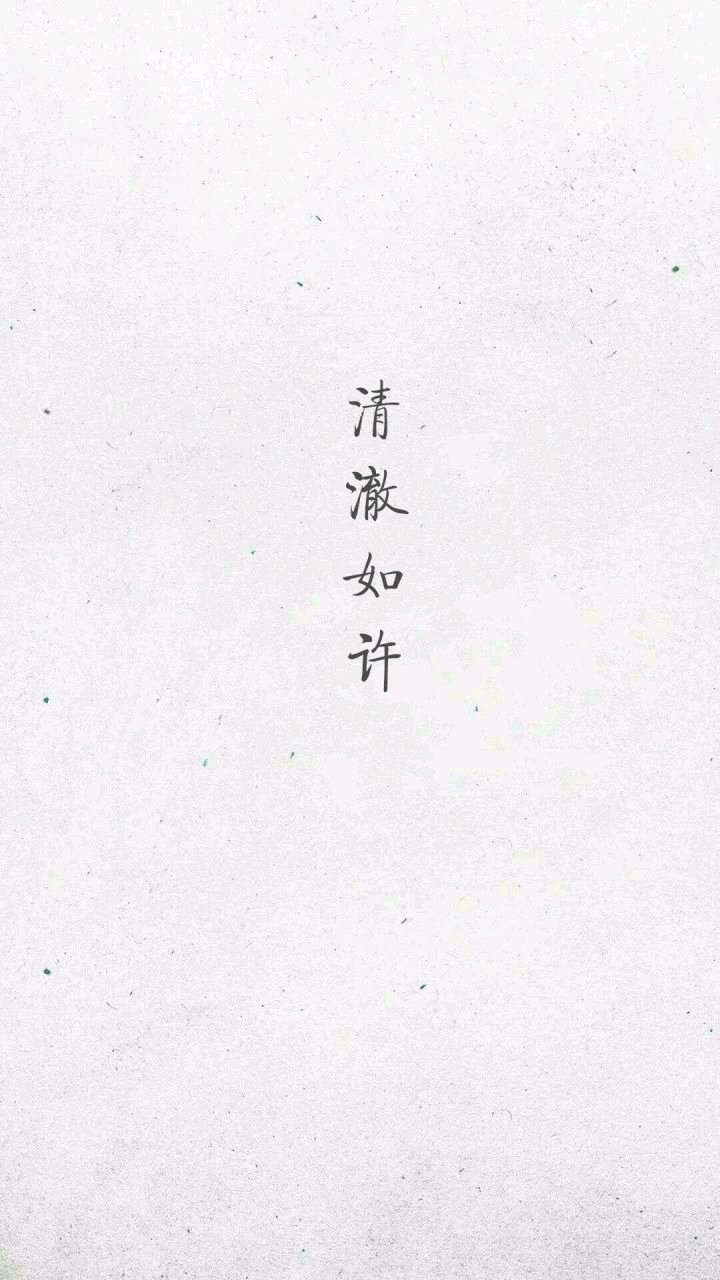 清澈如许